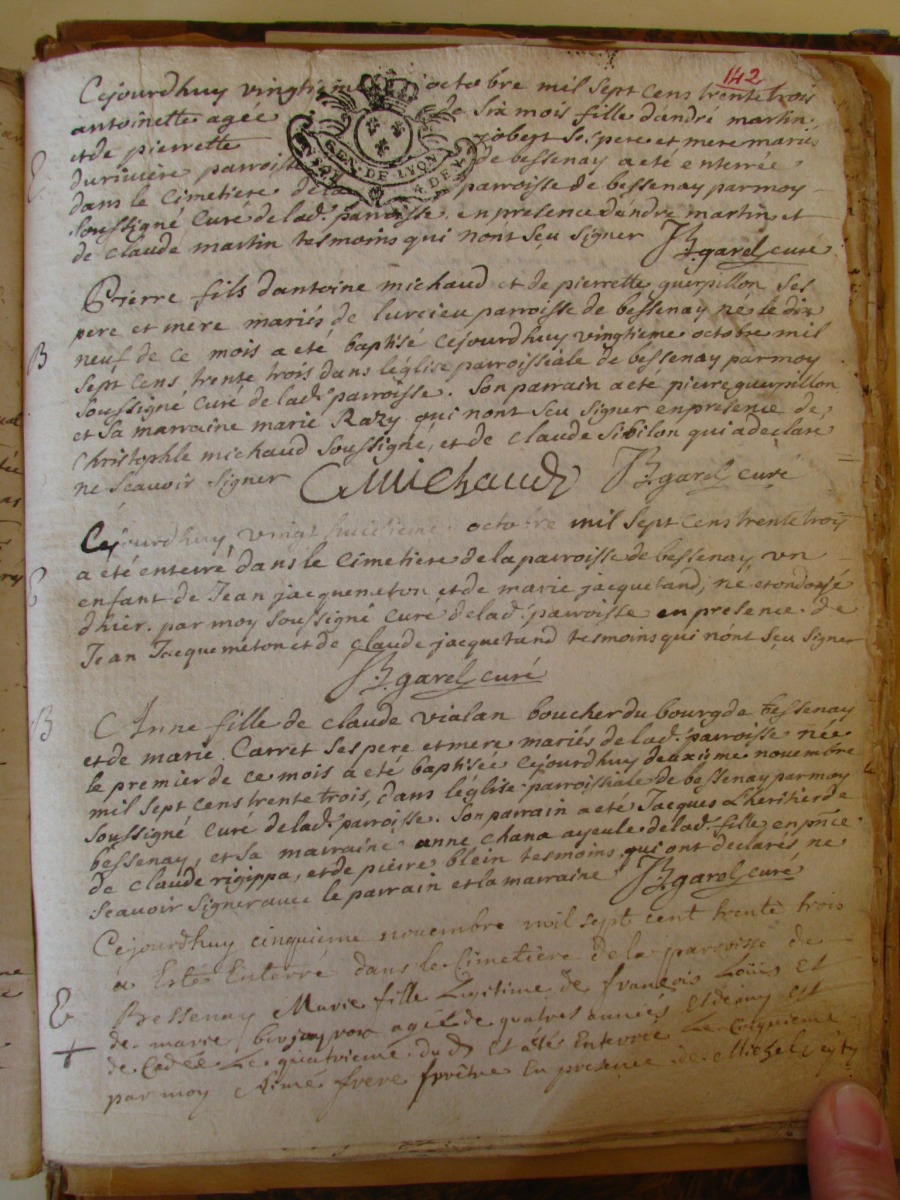 142
Cejourdhuy vingtieme octobre mil sept cens trente trois
antoinette agée de six mois fille dandré martin
et de pierrette jobert ses pere et mere mariés
du riviere parroisse de bessenay a eté enterrée
GEN. DE LYON
4 DE
E
dans le cimetiere de la parroisse de bessenay par moy
soussigné curé de lad. parroisse en presence dandré martin et
de claude martin tesmoins qui nont sçu signer
garel curé
Pierre fils dantoine michaud et de pierrette guerpillon ses
pere et mere mariés de lurcieu parroisse de bessenay né le dix
B
neuf de ce mois a eté baptisé cejourdhuy vingtieme octobre mil
sept cens trente trois dans léglise parroissiale de bessenay par moy
soussigné curé de lad. parroisse. Son parrain a eté pierre guerpillon
et sa marraine marie Razy qui nont sçu signer en presence de
christophle michaud soussigné, et de claude sibilon qui a declaré
ne scauoir signer CMichaud garel curé
Cejourdhuy vingt huictieme octobre mil sept cens trente trois
a été enterré dans le cimetiere de la parroisse de bessenay, un
E
enfant de Jean jacquemeton et de marie jacquetand, né et ondoyé
dhier. par moy soussigné curé de lad. parroisse en presence de
Jean Jacquemeton et de claude jacquetand tesmoins qui nont sçu signer
garel curé
B
Anne fille de claude vialan boucher du bourg de bessenay
et de marie Carret ses pere et mere mariés de lad. parroisse née
le premier de ce mois a eté baptisée cejourdhuy deuxieme novembre
mil sept cens trente trois, dans léglise parroissiale de bessenay par moy
soussigné curé de lad. parroisse. Son parrain a eté Jacques Lheritier de
bessenay, et sa marraine anne chana ayeule de lad. fille en pnce
de claude rigippa, et de pierre blein tesmoins qui ont declarés ne
scauoir signer avec le parrain et la marraine garel curé
Cejourdhuy cinquieme novembre mil sept cent trente trois
a Esté Enterré dans le Cimetiere de la parroisse de
E
Bessenay Marie fille Legitime de françois Loüis Et
de marie agée de quatres années Et demy Est
+
de Cedée Le quatrieme dud Et a étés Enterrée Le Cinquieme
par moy Aimé frere prêtre En presence de Michel